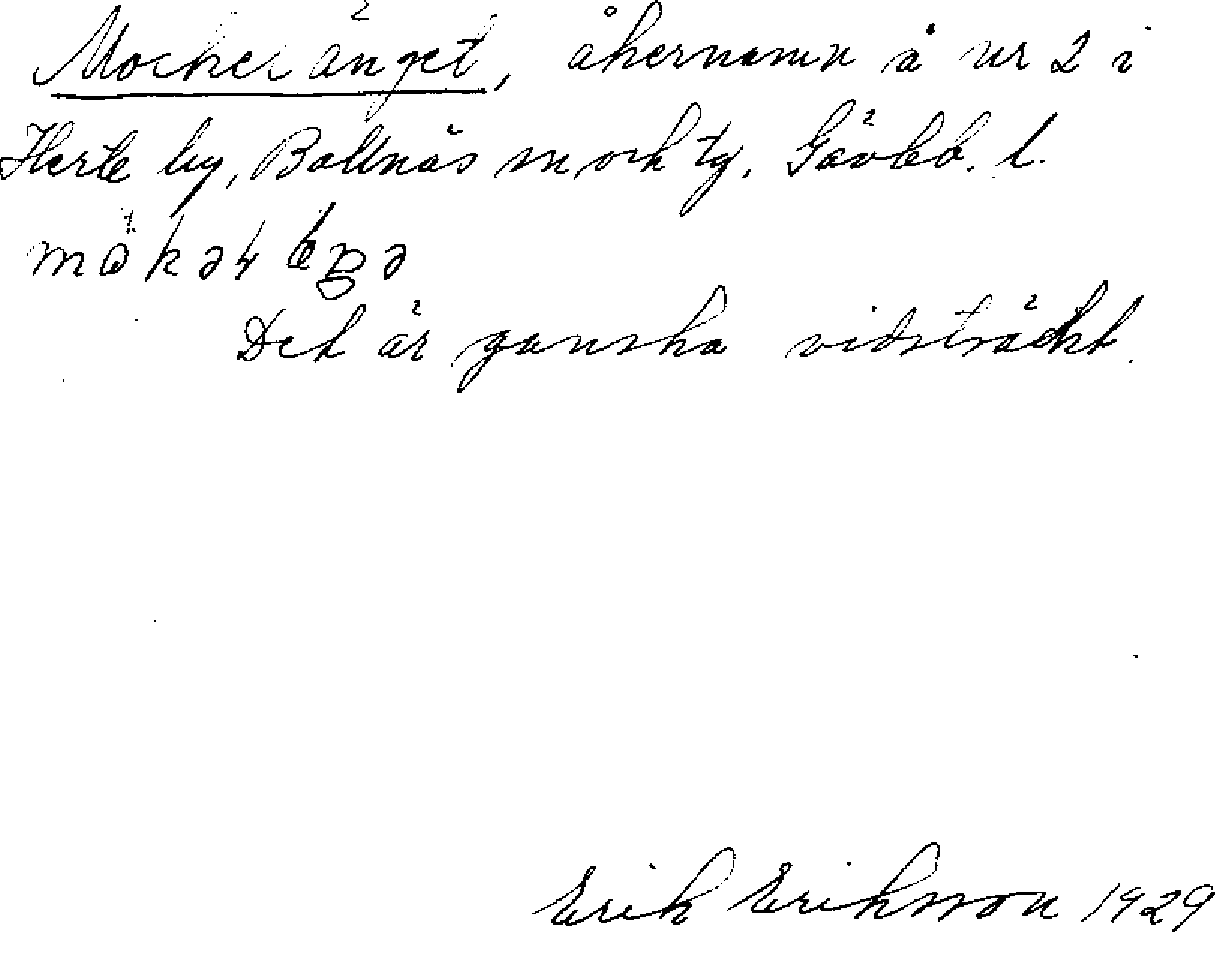 Mockeränget, åkernamn å nr 2 i
Herte by, Bollnäs sn och tg. Gävleb. l.
Det är ganska vidsträckt.
Erik Eriksson 1929